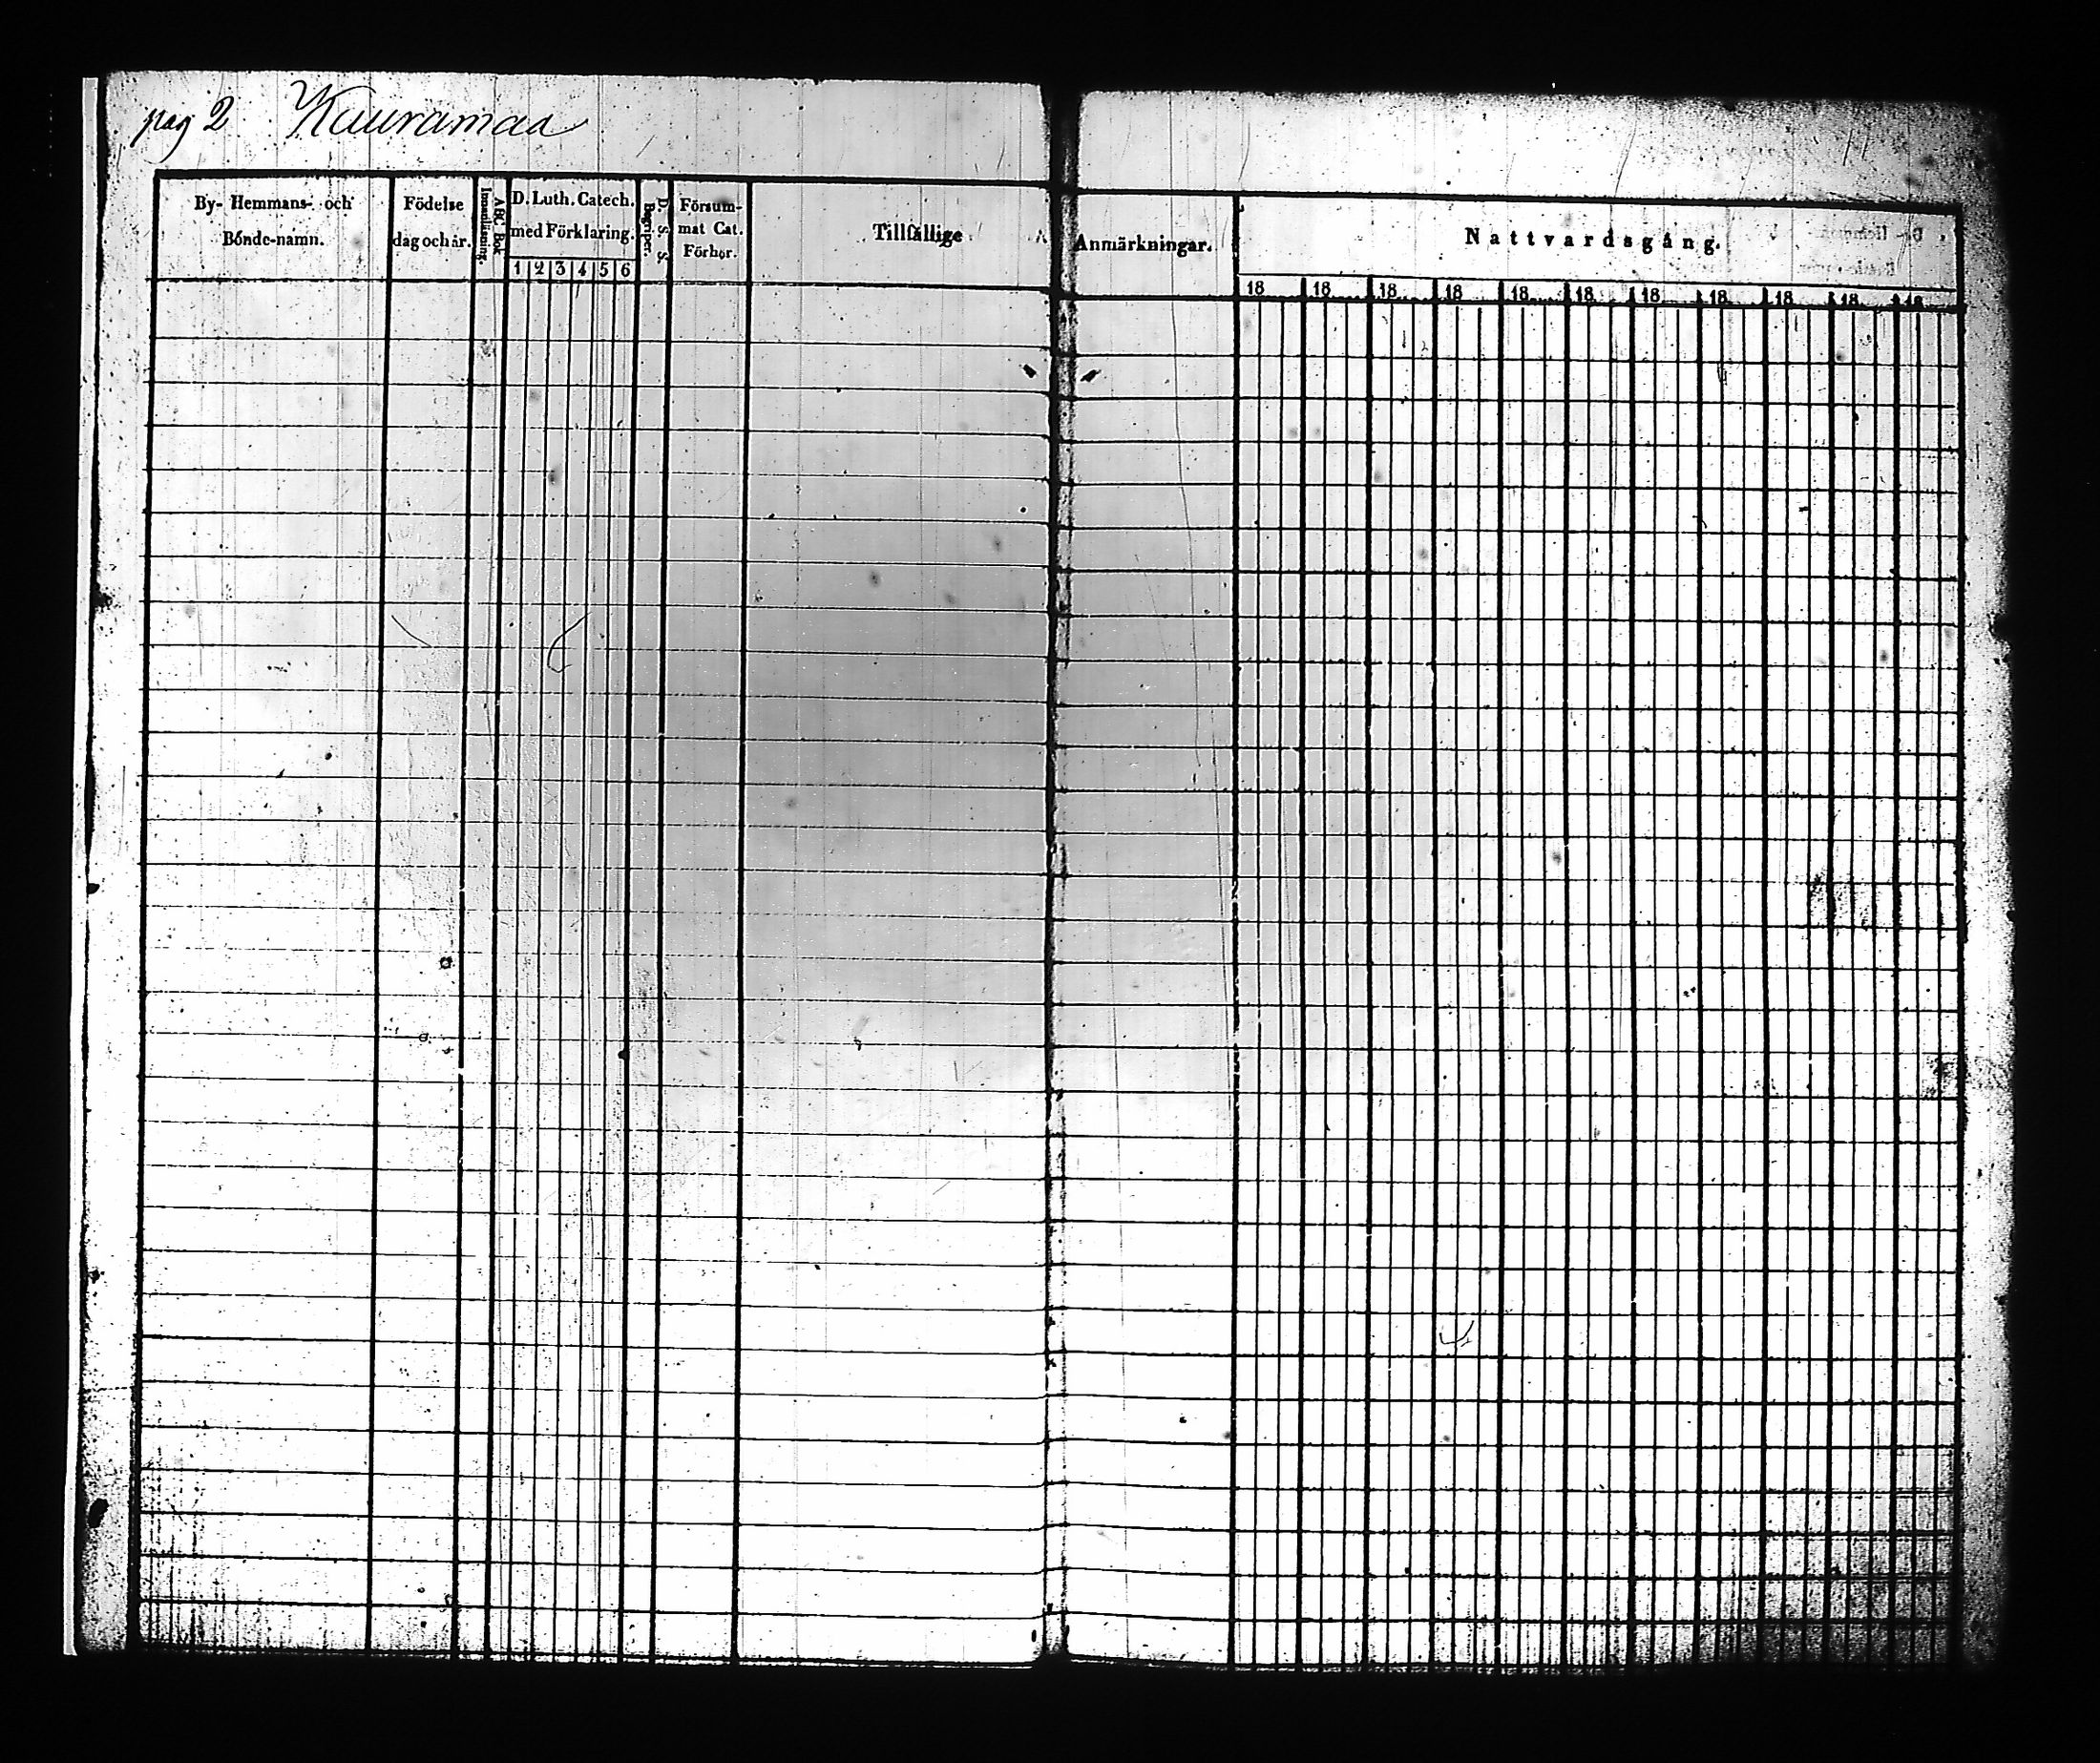 pag 2 Kauramaa
By- Hemmans- och
Bonde-namn.
Födelse
dag och år.
Innanläsning.
ABC Bok
D. Luth. Catech.
med Förklaring.
1 2 3 4 5 6
D. S. S.
Begriper.
Försum-
mat Cat.
Förhör.
Tillfällige
Anmärkningar.
Nattvardsgång.
18 18 18 18 18 18 18 18 18 18 18